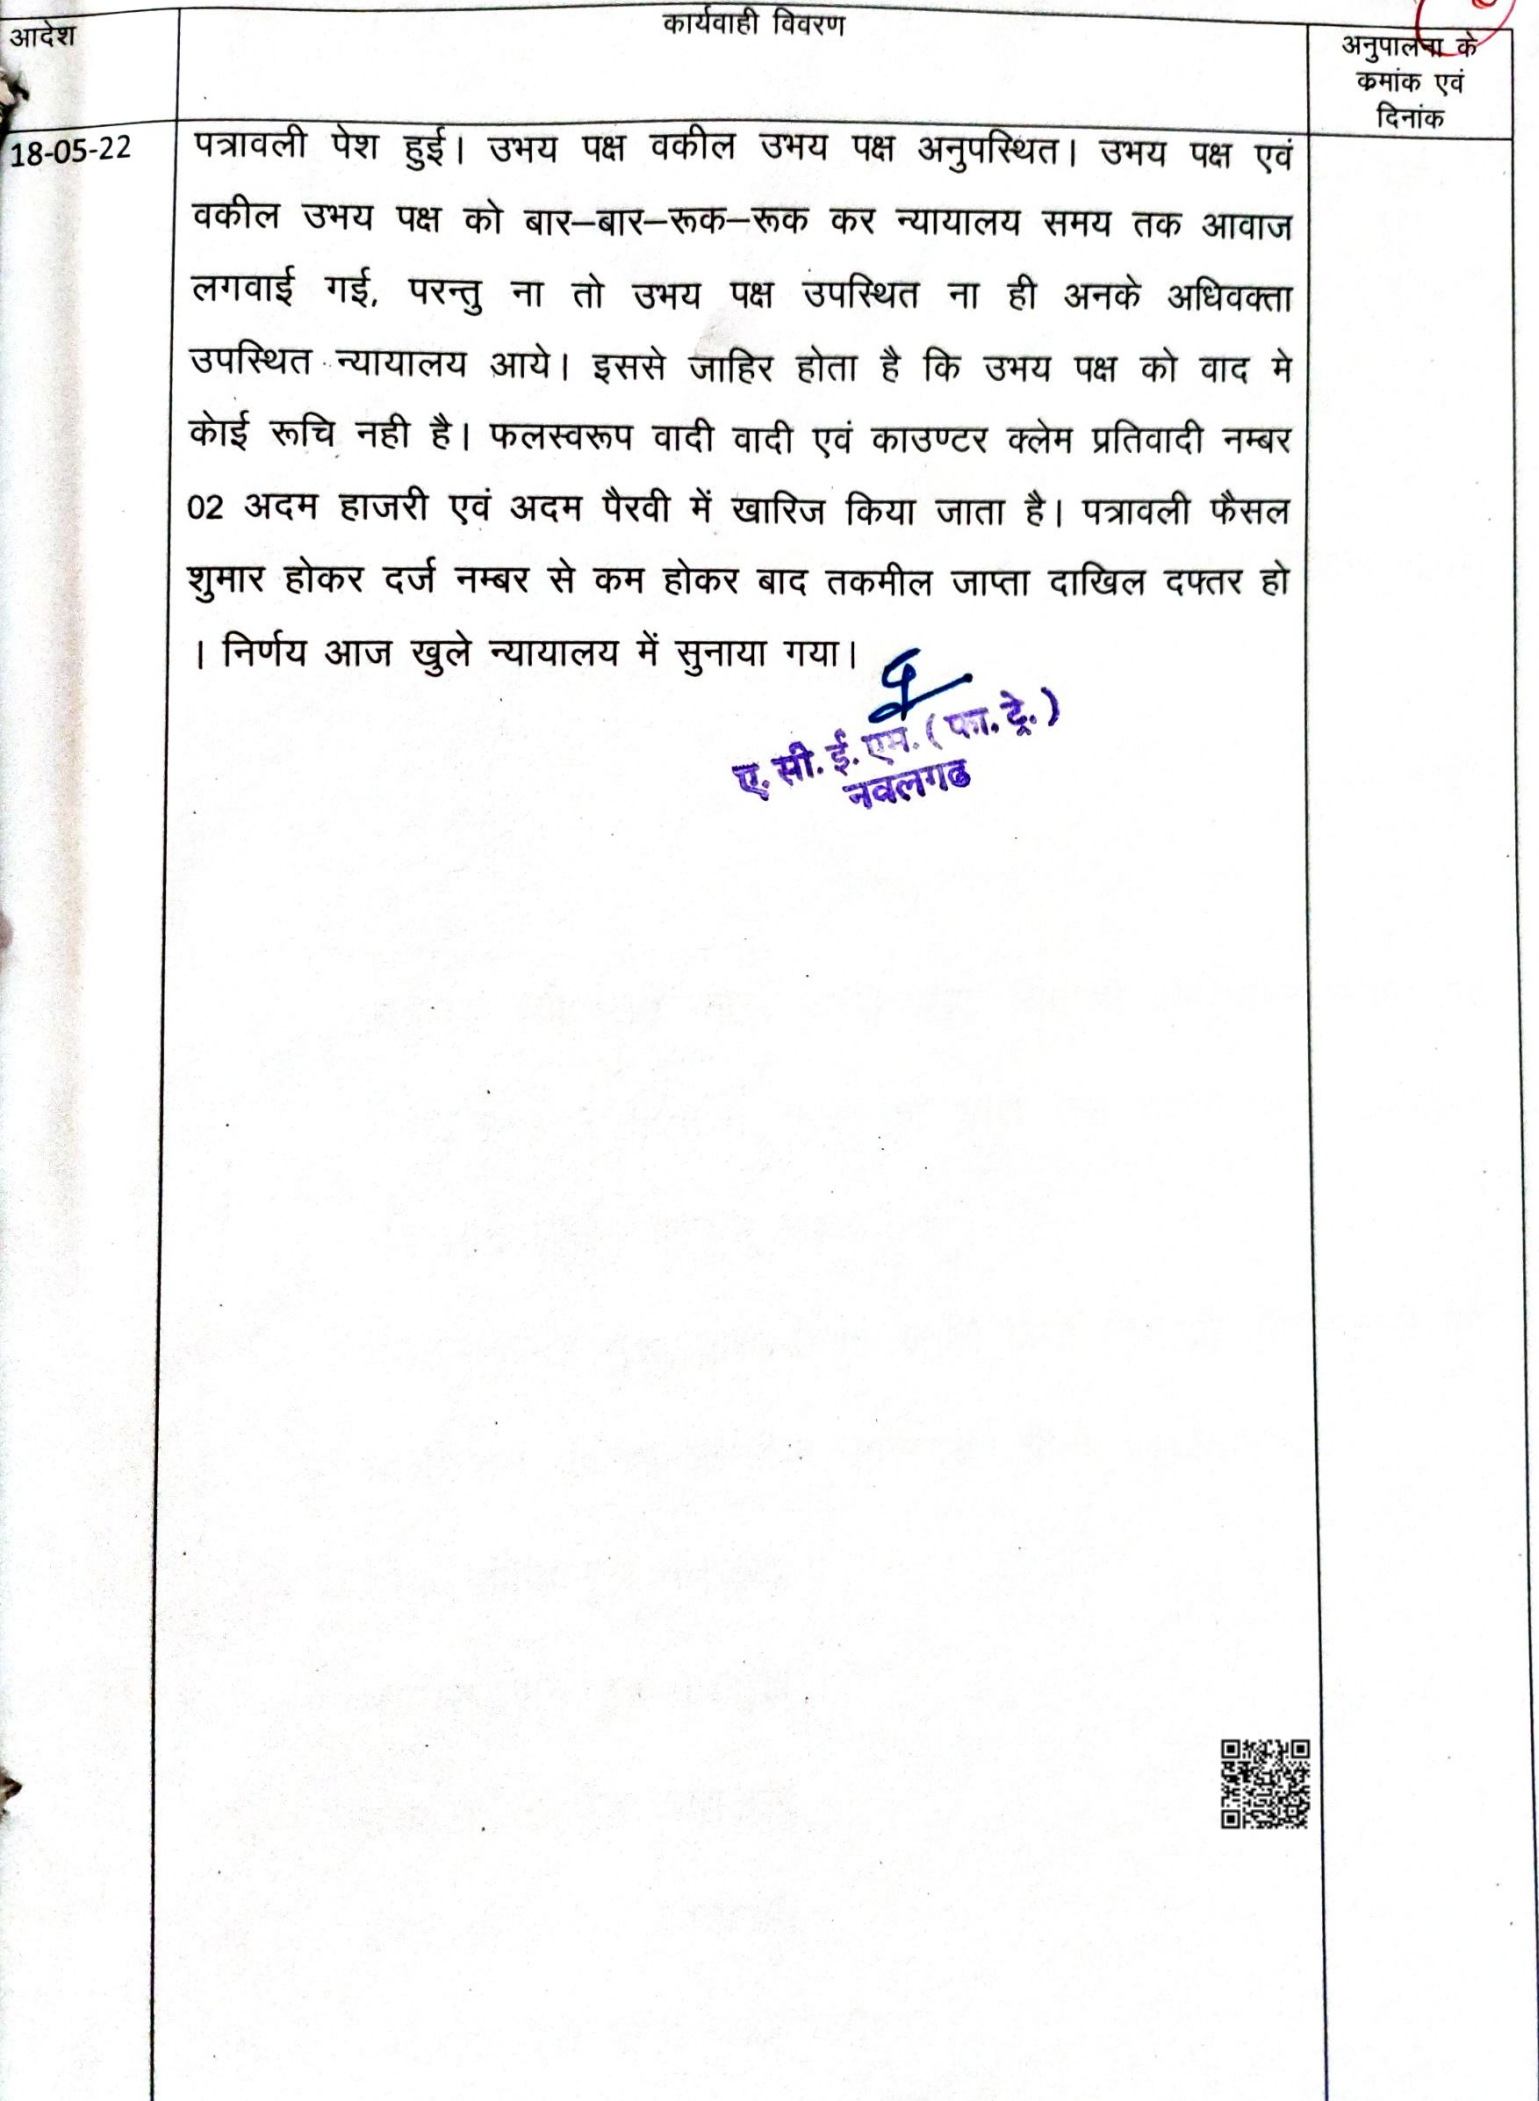 आदेश
कार्यवाही विवरण
अनुपालना के
कमांक एवं
दिनांक
18-05-22
पत्रावली पेश हुई। उभय पक्ष वकील उभय पक्ष अनुपस्थित। उभय पक्ष एवं
वकील उभय पक्ष को बार–बार–रूक–रूक कर न्यायालय समय तक आवाज
लगवाई गई, परन्तु ना तो उभय पक्ष उपस्थित ना ही अनके अधिवक्ता
उपस्थित न्यायालय आये। इससे जाहिर होता है कि उभय पक्ष को वाद मे
केाई रूचि नही है। फलस्वरूप वादी वादी एवं काउण्टर क्लेम प्रतिवादी नम्बर
02 अदम हाजरी एवं अदम पैरवी में खारिज किया जाता है। पत्रावली फैसल
शुमार होकर दर्ज नम्बर से कम होकर बाद तकमील जाप्ता दाखिल दफ्तर हो
। निर्णय आज खुले न्यायालय में सुनाया गया।
ए. सी. ई. एम. ( फा. ट्रे. )
नवलगढ